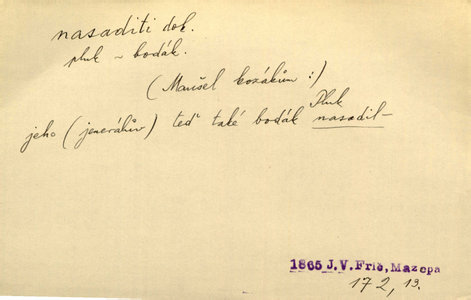 nasaditi dok.
pluk ~ bodák.
(Maršel kozákům:)
Pluk
jeho (jenerálův) teď také bodák nasadil–
1865 J.V.Frič, Mazepa
172, 13.